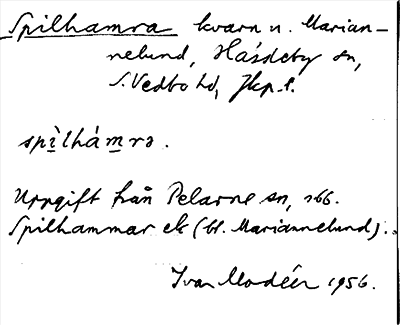 Spilhamra kvarn n. Marian-
nelund, Hässleby sn,
S. Vedbo hd, Jkp. l.
spìlhámrə.
Uppgift från Pelarne sn, s66.
Spilhammar ek (bl. Mariannelund).
Ivar Modéer 1956.